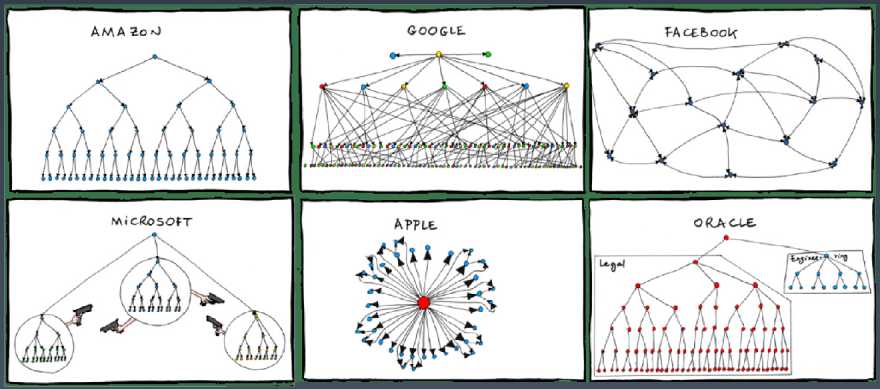 AMAZON
GOOGLE
FACEBOOK
MiCROSOFT
APPLE
ORACLE
Legal
Engineering